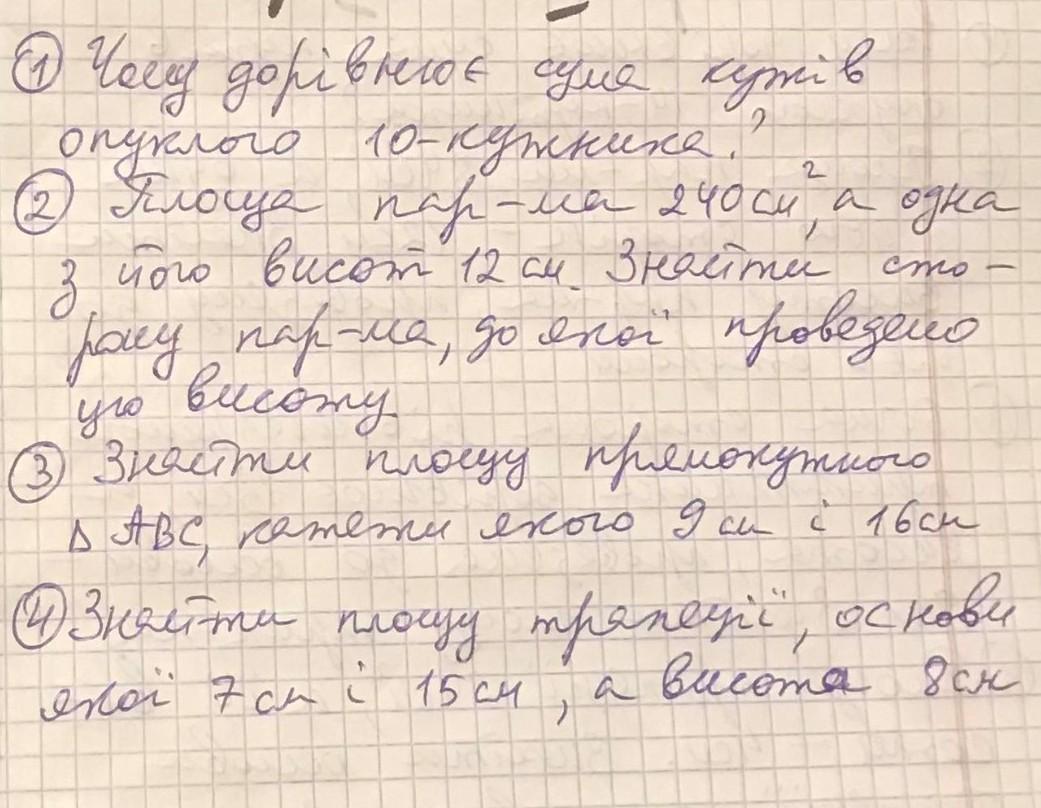 ① Чому дорівнює сума кутів
опуклого 10-кутника?
② Площа пар-ма 240 см², а одна
з його висот 12 см. Знайти сто-
рону пар-ма, до якої проведено
цю висоту
③ Знайти площу прямокутного
Δ ABC, катети якого 9 см і 16 см
④ Знайти площу трапеції, основи
якої 7 см і 15 см, а висота 8 см